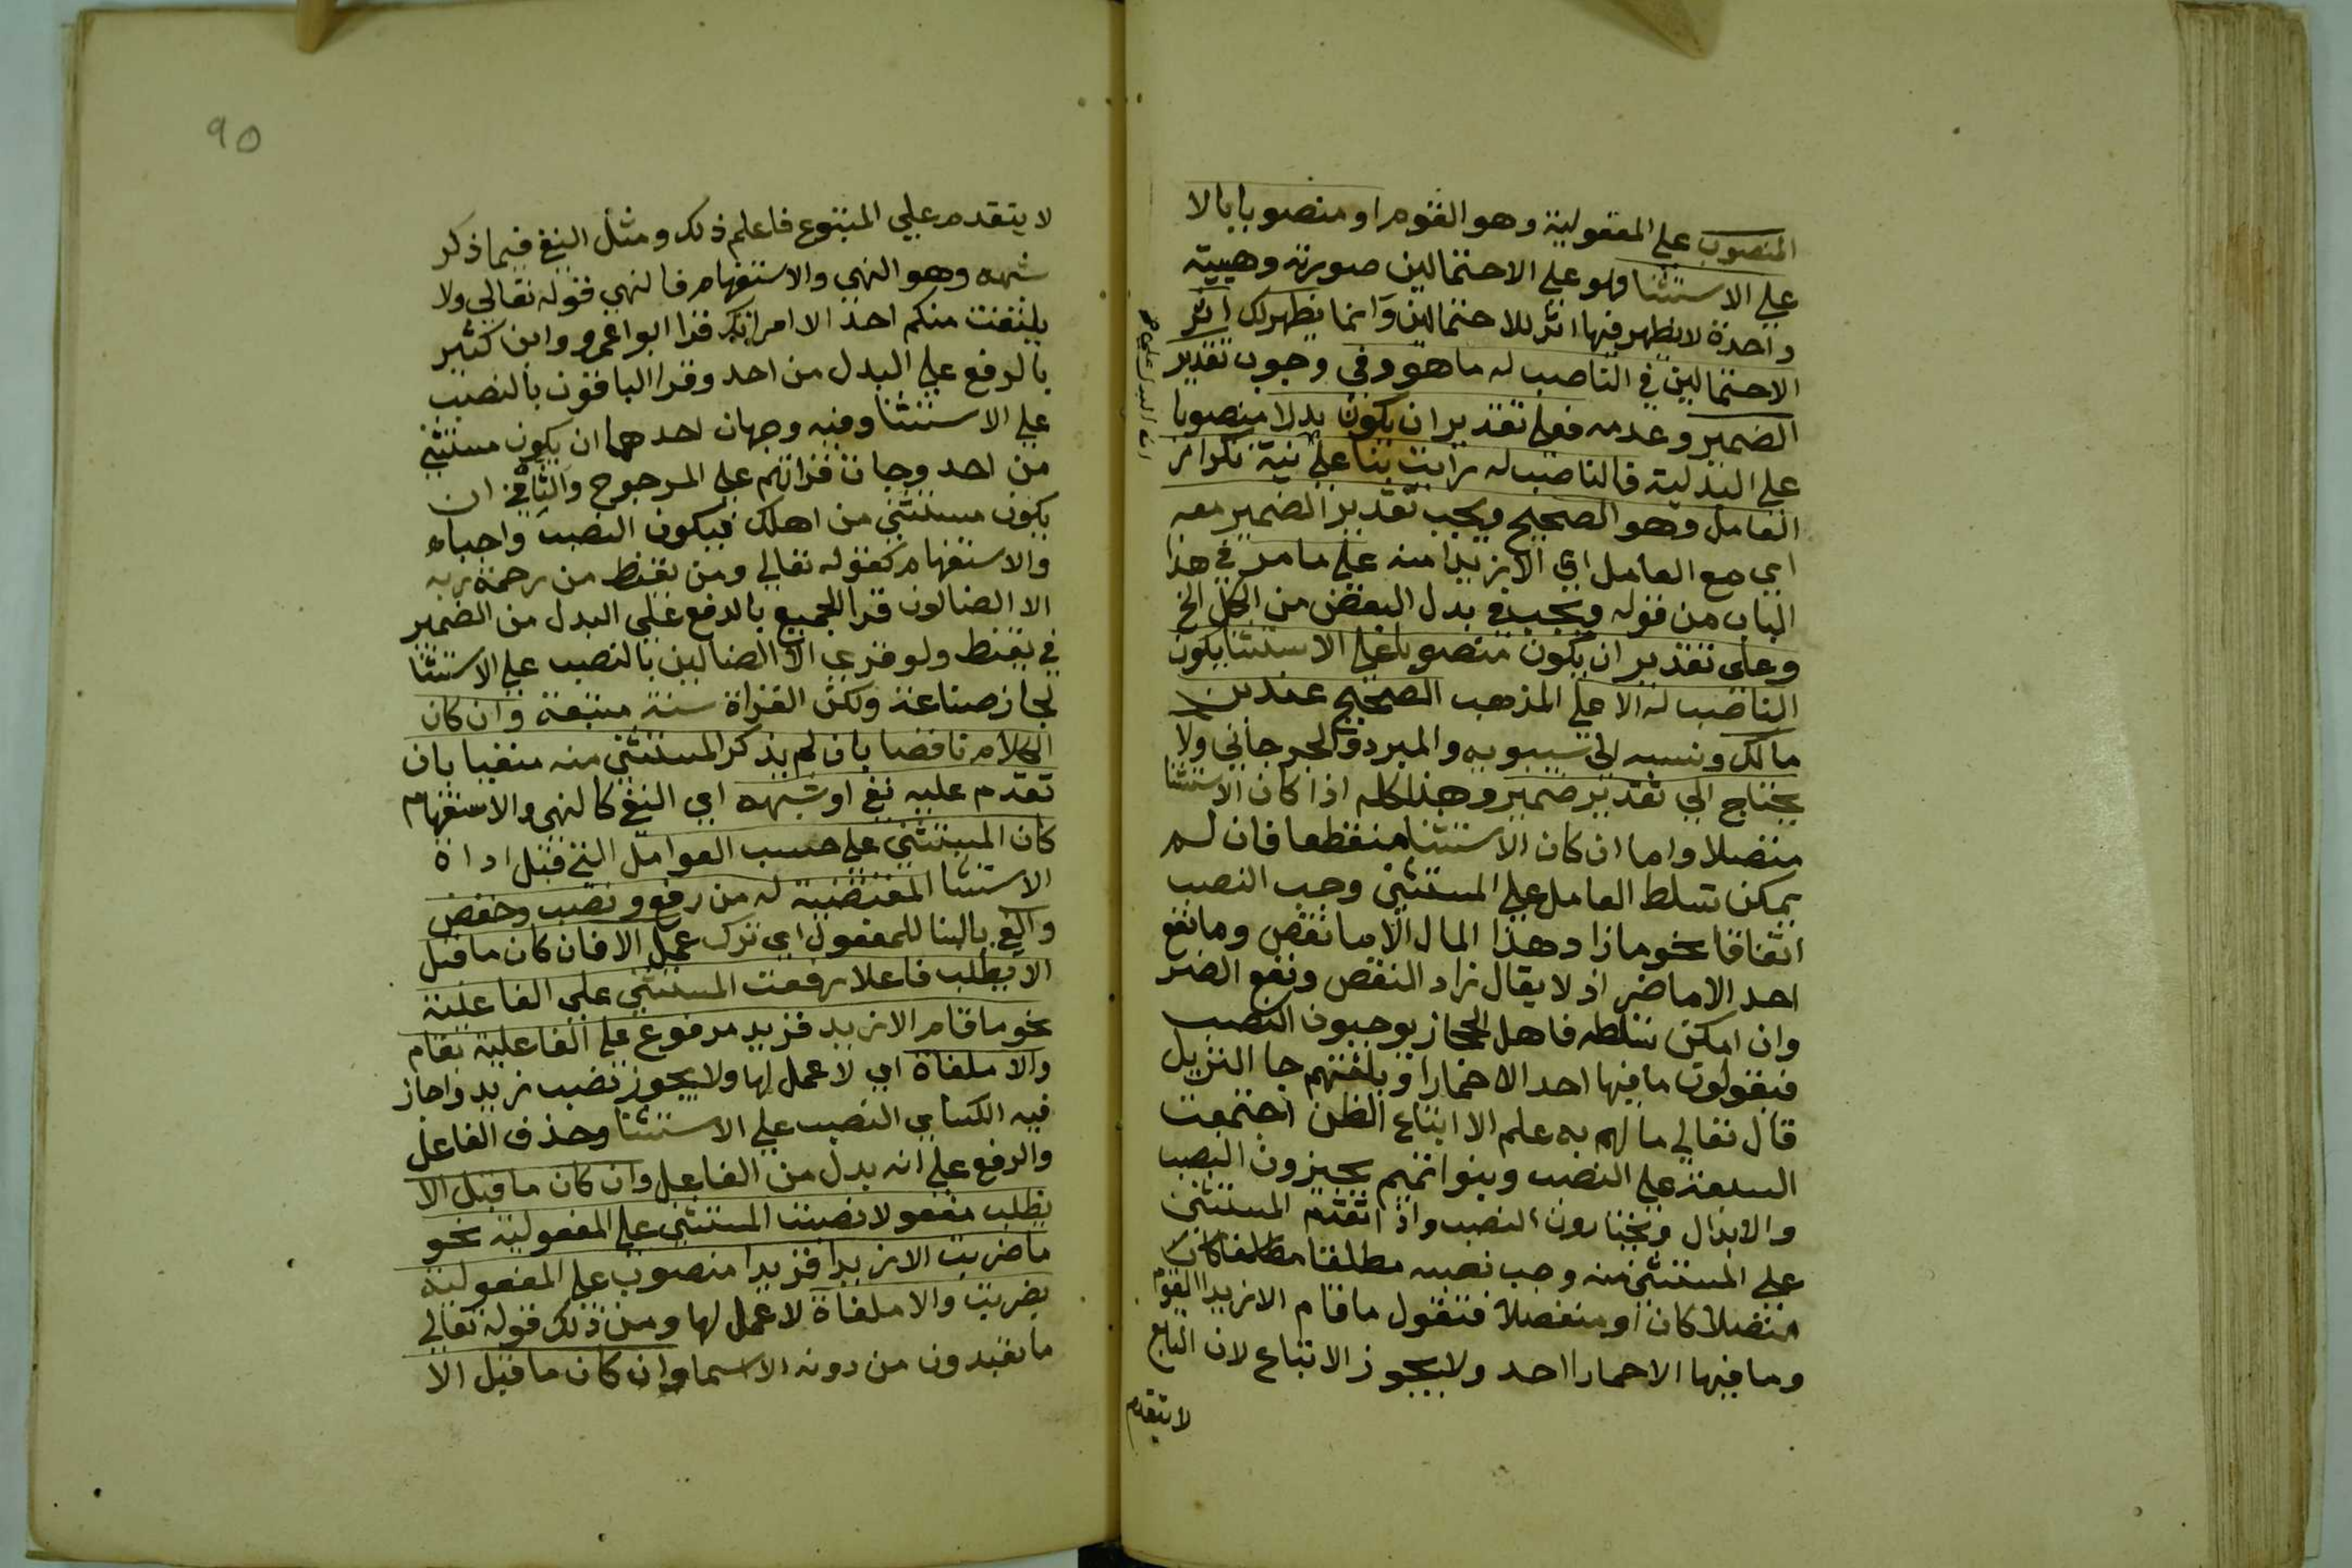 المنصوب على المفعولية وهو القوم او منصوبا بالا
على الاستثنا وهو على الاحتمالين صورته وهيية
واحدة لا يظهر فيها اثر للاحتمالين وانما يظهر لك اثر
الاحتمالين في الناصب له ما هو وفي وجوب تقدير
الضمير وعدمه فعلى تقدير ان يكون بدلا منصوبا
على البدلية فالناصب له رايت بنا على نية تكرار
العامل وهو الصحيح ويجب تقدير الضمير معه
اي مع العامل اي الا زيدا منه على ما مر في هذا
الباب من قوله ويجب في بدل البعض من الكل الخ
وعلى تقدير ان يكون منصوبا على الاستثنا يكون
الناصب له الا على المذهب الصحيح عند بن
مالك ونسبه الى سيبويه والمبرد والجرجاني ولا
يحتاج الي تقدير ضمير وهذا كله اذا كان الاستثنا
متصلا واما ان كان الاستثنا منقطعا فان لم
يمكن تسلط العامل على المستثني وجب النصب
اتفاقا نحو ما زاد هذا المال الا ما نقص وما نفع
احد الا ما ضر اذ لا يقال زاد النقص ونفع الضر
وان امكن تسلطه فاهل الحجاز يوجبون النصب
فيقولون ما فيها احد الا حمارا وبلغتهم جا التنزيل
قال تعالي ما لهم به علم الا اتباع الظن اجتمعت
السبعة على النصب وبنوا تميم يجيزون النصب
والابدال ويختارون النصب واذا تقدم المستثني
على المستثني منه وجب نصبه مطلقا كان
متصلا كان او منفصلا فتقول ما قام الا زيدا القوم
وما فيها الا حمارا احد ولا يجوز الاتباع لان التابع
لا يتقدم
لا يتقدم علي المتبوع فاعلم ذلك ومثل النفي فيما ذكر
شبهه وهو النهي والاستفهام فالنهي قوله تعالي ولا
يلتفت منكم احد الا امراتك قرا ابوا عمرو وابن كثير
بالرفع على البدل من احد وقرا الباقون بالنصب
على الاستثنا وفيه وجهان احدهما ان يكون مستثني
من احد وجات قراتهم على المرجوح والثاني ان
يكون مستثني من اهلك فيكون النصب واجبا
والاستفهام كقوله تعالي ومن يقنط من رحمة ربه
الا الضالون قرا الجميع بالرفع علي البدل من الضمير
في يقنط ولو قري الا الضالين بالنصب على الاستثنا
لجاز صناعة ولكن القراة سنة متبعة وان كان
الكلام ناقصا بان لم يذكر المستثني منه منفيا بان
تقدم عليه نفي او شبهه اي النفي كالنهي والاستفهام
كان المستثني على حسب العوامل التي قبل اداة
الاستثنا المقتضية له من رفع ونصب وخفض
والغي بالبنا للمفعول اي ترك عمل الا فان كان ما قبل
الا يطلب فاعلا رفعت المستثني علي الفاعلية
نحو ما قام الا زيد فزيد مرفوع على الفاعلية بقام
والا ملغاة اي لا عمل لها ولا يجوز نصب زيد واجاز
فيه الكساي النصب على الاستثنا وحذف الفاعل
والرفع على انه بدل من الفاعل وان كان ما قبل الا
يطلب مفعولا نصبت المستثني على المفعولية نحو
ما ضربت الا زيدا فزيدا منصوب على المفعولية
بضربت والا ملغاة لا عمل لها ومن ذلك قوله تعالي
ما تعبدون من دونه الا اسما وان كان ما قبل الا
٩٥